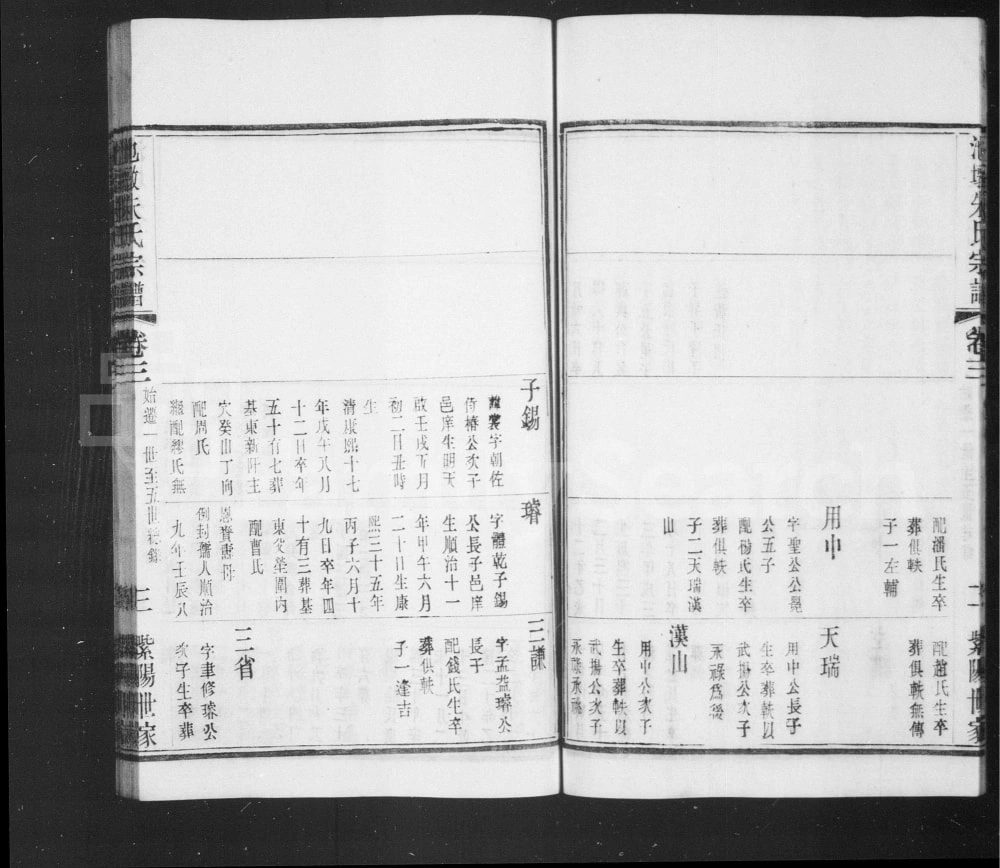 朱氏宗譜
卷三
二
紫陽世家
配潘氏生卒
葬俱軼
子一左輔
用中
字聖公公毘
公五子
配楊氏生卒
葬俱軼
子二天瑞漢
山
配趙氏生卒
葬俱軼無傳
天瑞
用中公長子
生卒葬軼以
武揚公次子
永祿為後
漢山
用中公次子
生卒葬軼以
武揚公次子
永祿承祧
子錫
字朝佐
侍椿公次子
邑庠生明天
啟壬戌五月
初二日丑時
生
清康熙十七
年戊午八月
十二日卒年
五十有七葬
基東新阡主
穴癸山丁向
配周氏
繼配繆氏無
璿
字體乾子錫
公長子邑庠
生順治十一
年甲午六月
二十日生康
熙三十五年
丙子六月十
九日卒年四
十有三葬基
東父塋圍內
配曹氏
恩賚壽
例封孺人順治
九年壬辰八
三謙
字孟益璿公
長子
配錢氏生卒
葬俱軼
子一逢吉
三省
字聿修璿公
次子生卒葬
朱氏宗譜
卷三
始遷一世至五世
三
紫陽世家